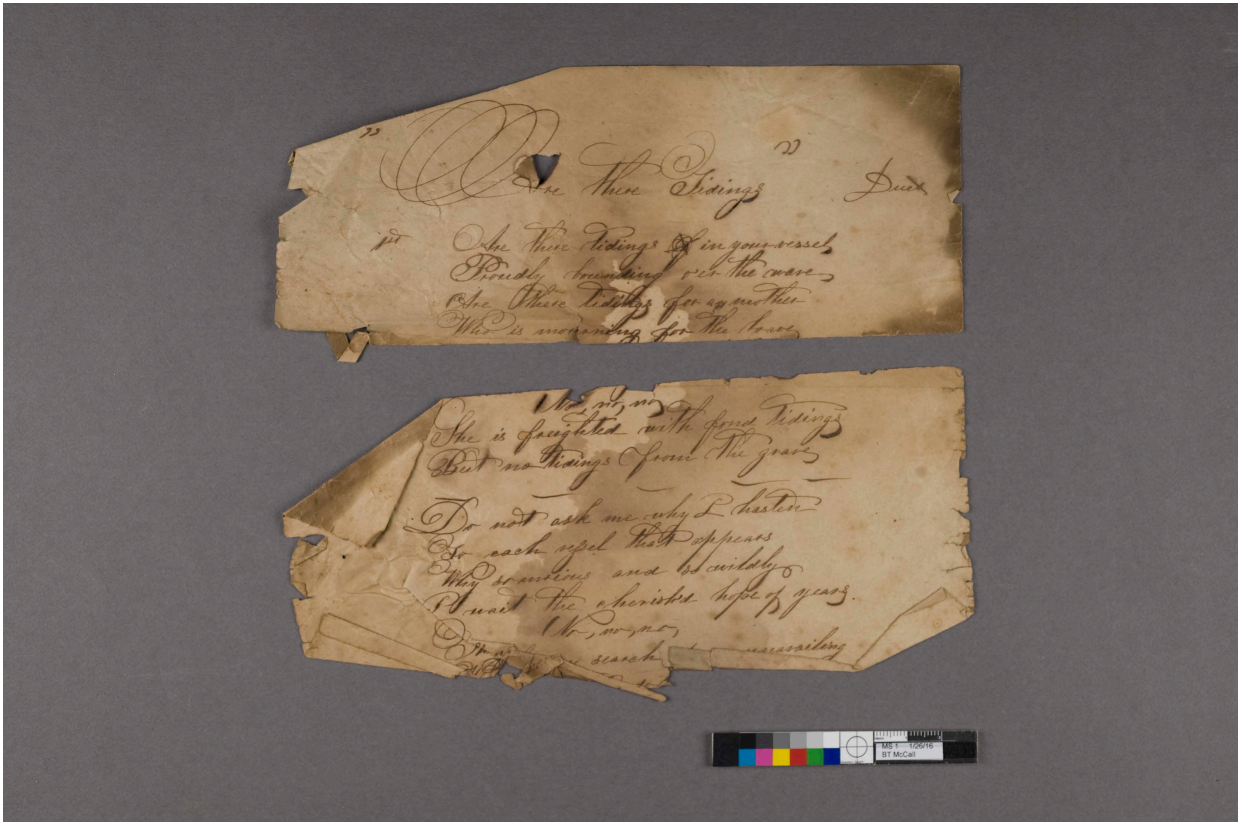 "
"
Are there Tidings Duet
1st Are there tidings in your vessel
Proudly bounding o'er the wave
Are there tidings for a mother
Who is mourning for the brave
No, no, no,
She is freighted with fond tidings
But no tidings from the grave
Do not ask me why I hasten
To each vessel that appears
Why so anxious and so wildly
I wait the cherished hope of years.
No, no, no,
search unavailing
MS 1 1/26/16
BT McCall